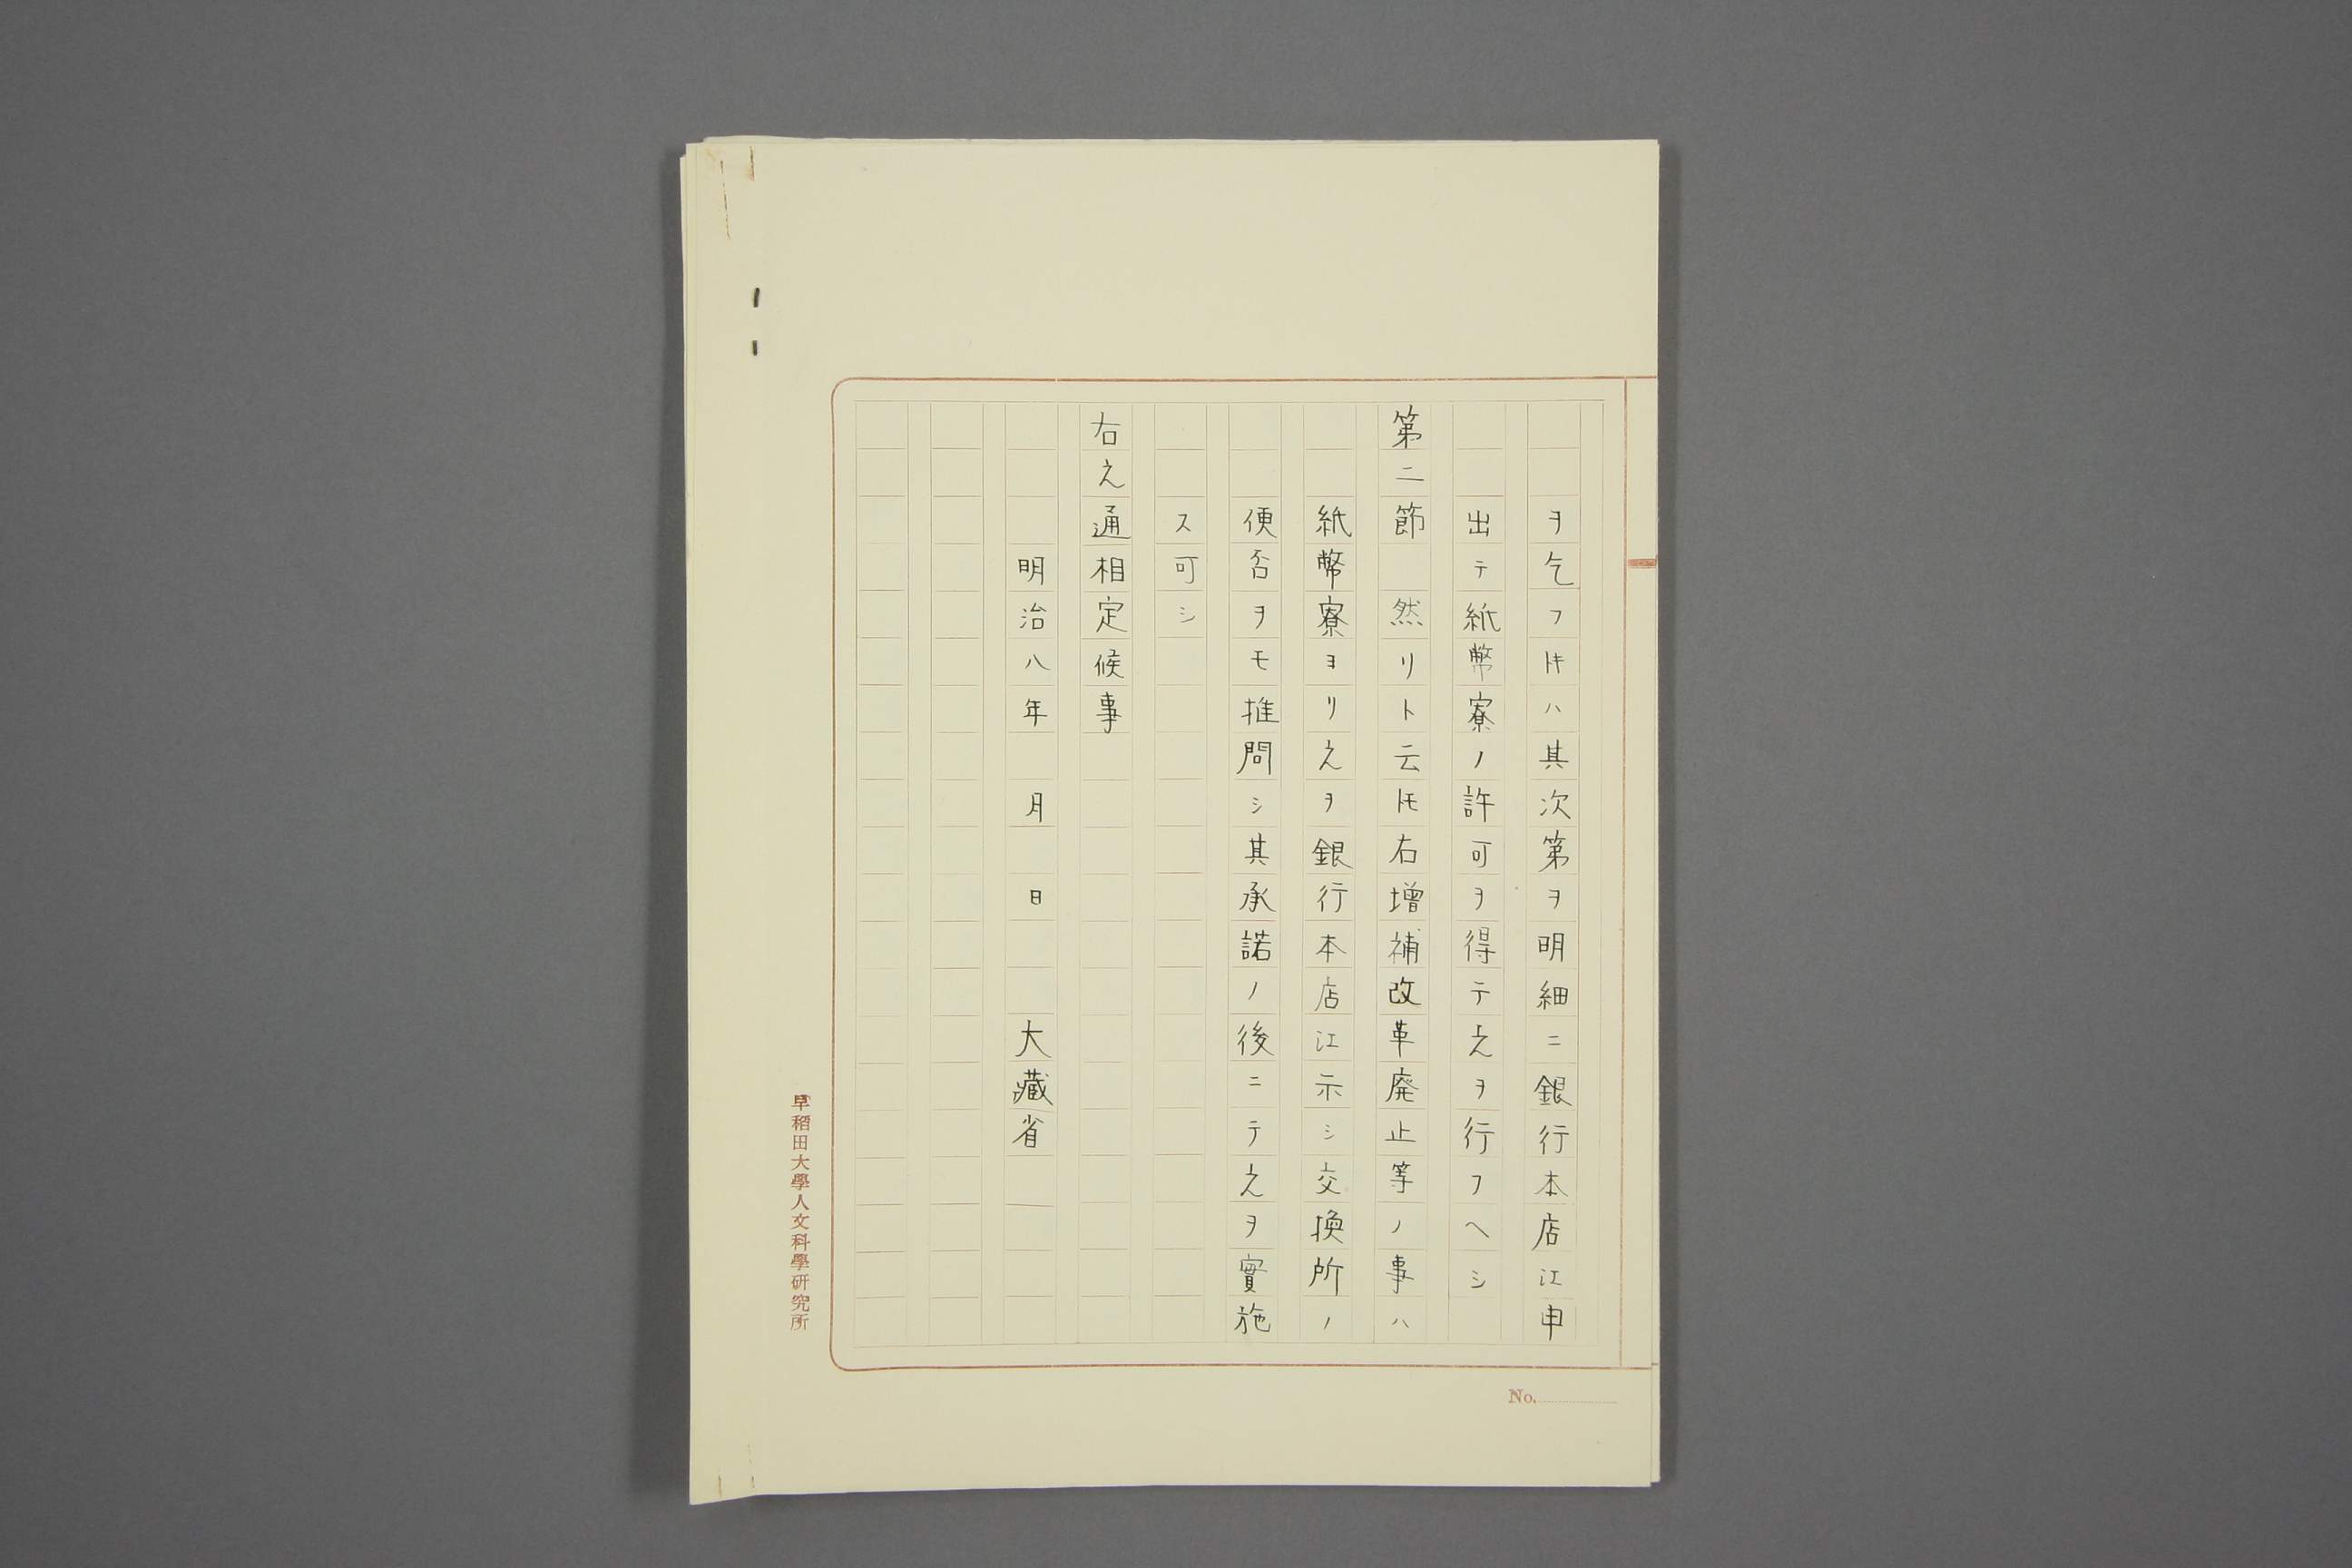 ヲ乞フ𪜈ハ其次第ヲ明細ニ銀行本店江申
出テ紙幣寮ノ許可ヲ得テ之ヲ行フヘシ
第二節　然リト云𪜈右増補改革廃止等ノ事ハ
紙幣寮ヨリ之ヲ銀行本店江示シ交換所ノ
便否ヲモ推問シ其承諾ノ後ニテ之ヲ實施
ス可シ
右之通相定候事
明治八年　月　日　　大藏省
早稲田大學人文科學研究所
No.